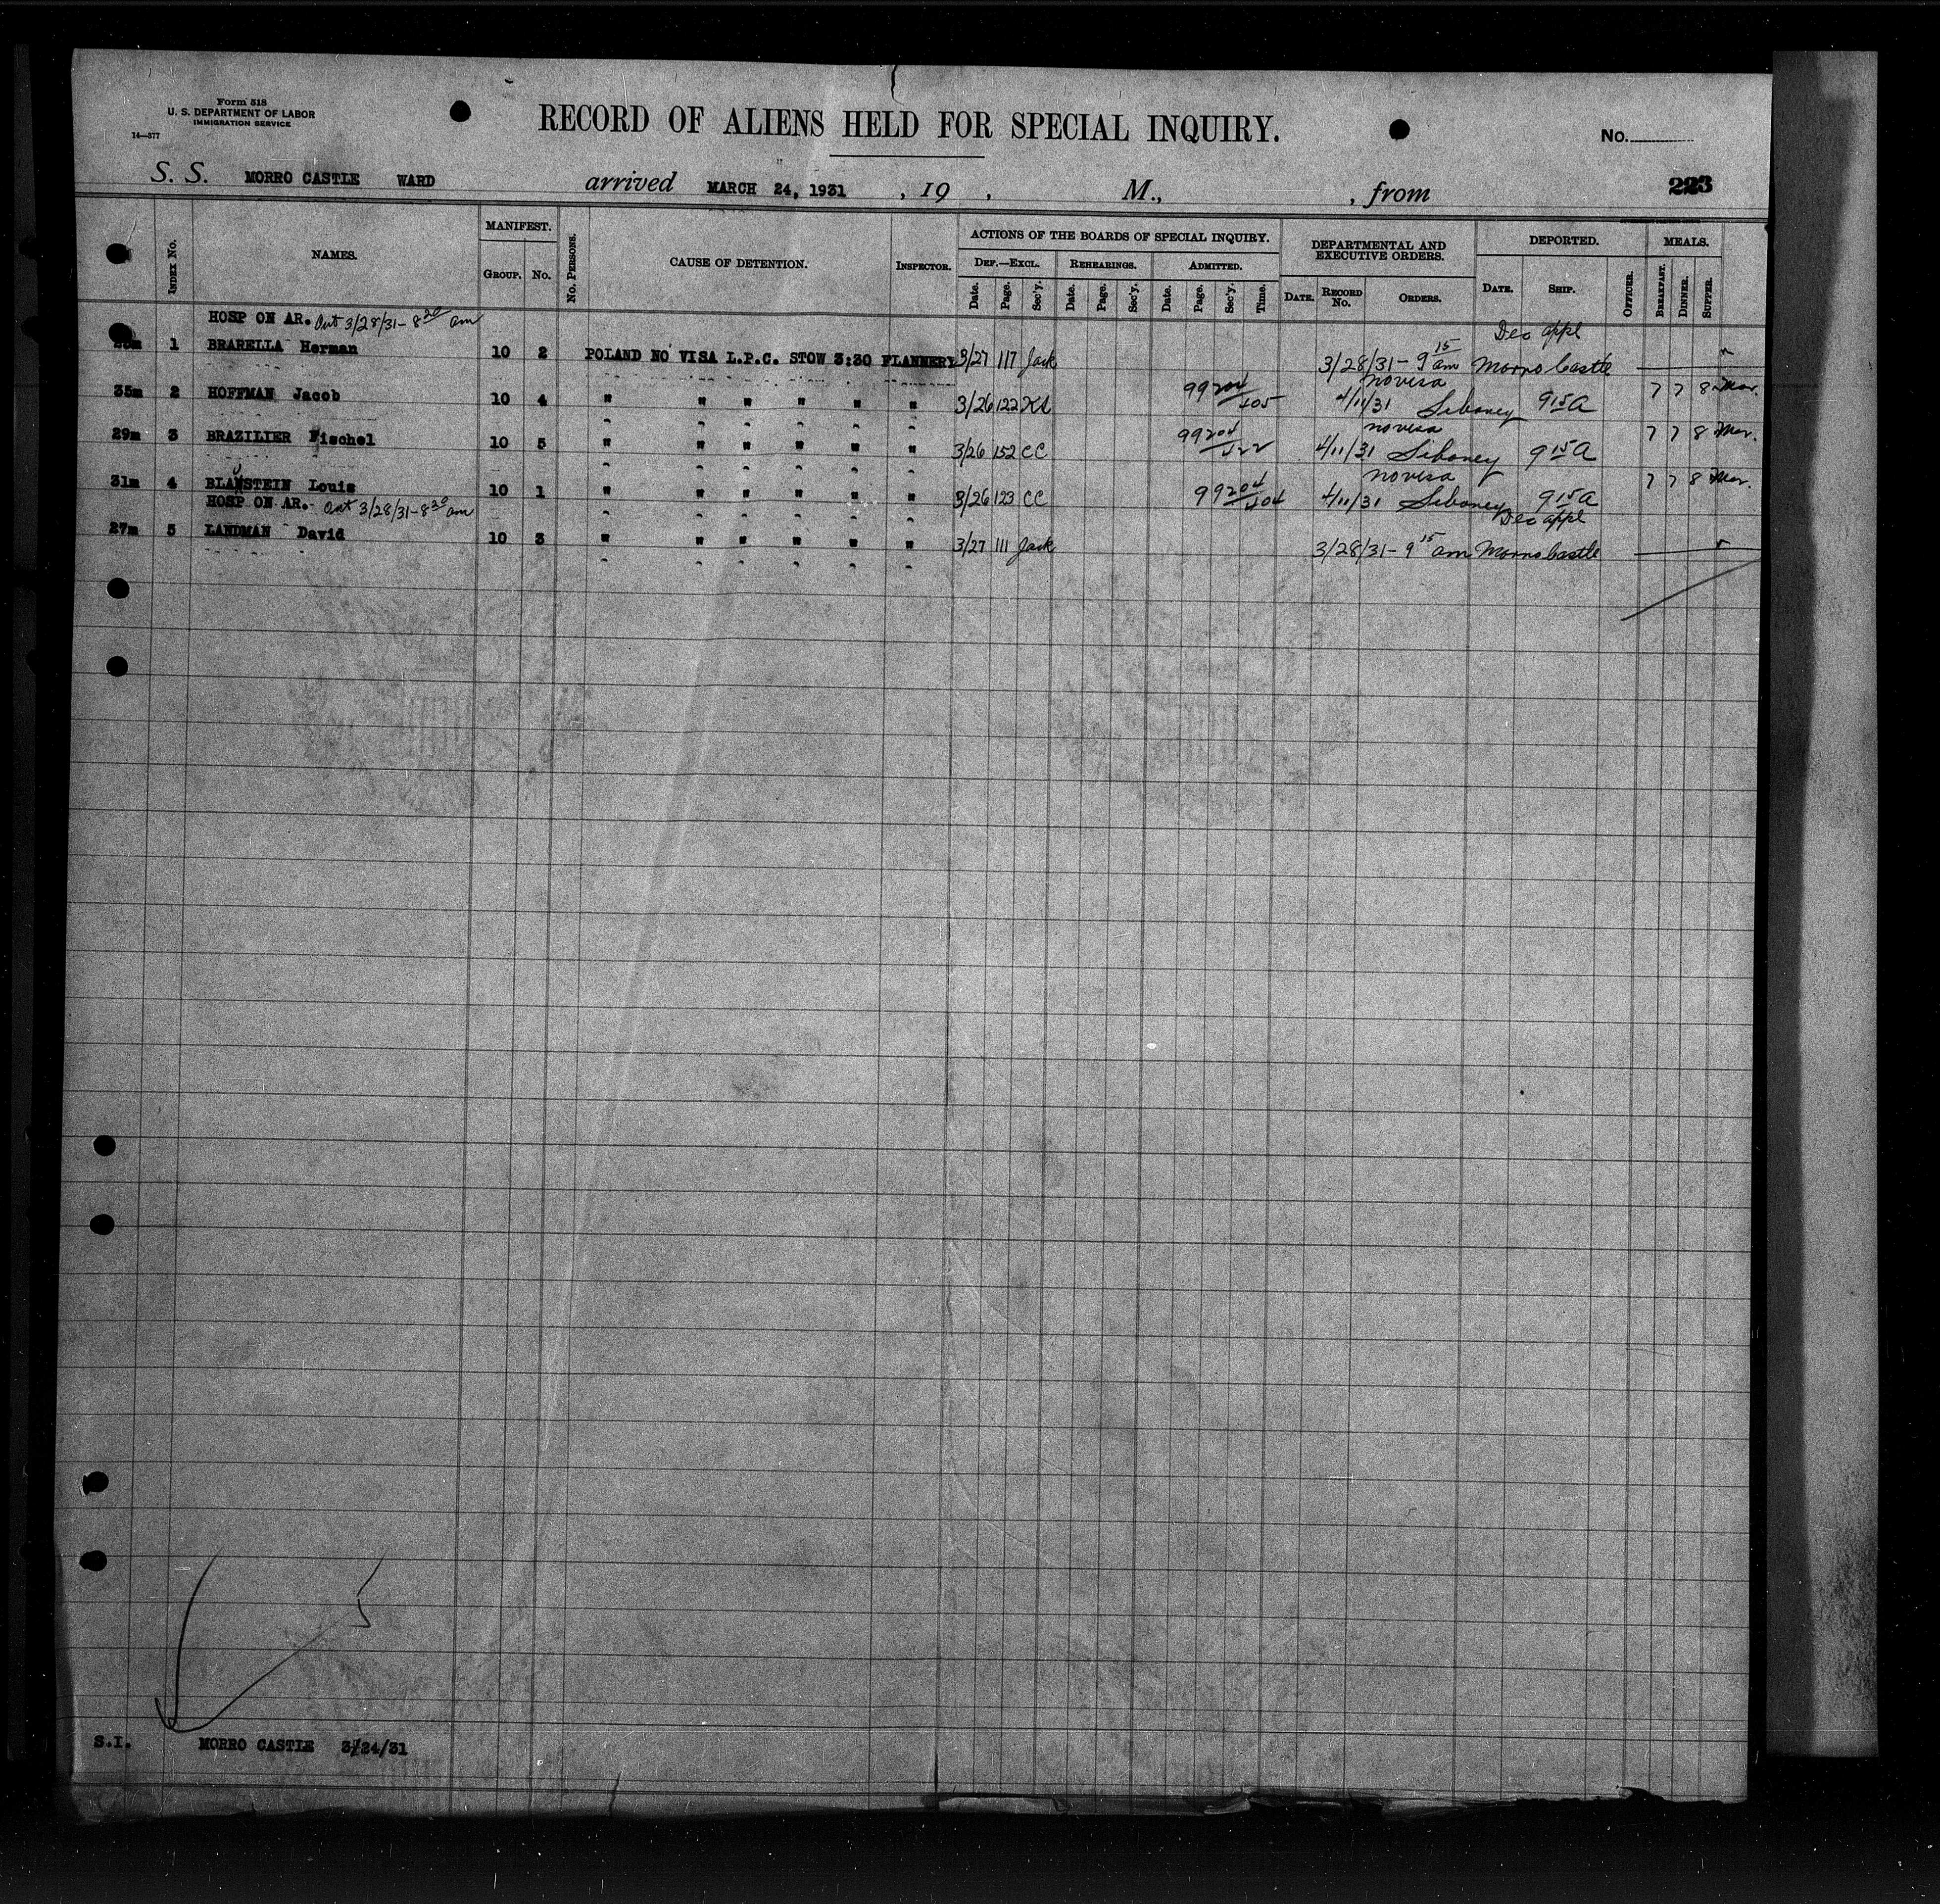 Form 518
U. S. DEPARTMENT OF LABOR
IMMIGRATION SERVICE
14—377
RECORD OF ALIENS HELD FOR SPECIAL INQUIRY.
No.
S. S. MORRO CASTLE WARD arrived MARCH 24, 1931 , 19 , M., , from
223
INDEX No. NAMES. MANIFEST. GROUP. No. No. PERSONS. CAUSE OF DETENTION. INSPECTOR.
ACTIONS OF THE BOARDS OF SPECIAL INQUIRY.
DEF.—EXCL. REHEARINGS. ADMITTED.
Date. Page. Sec'y. Date. Page. Sec'y. Date. Page. Sec'y. Time.
DEPARTMENTAL AND EXECUTIVE ORDERS.
DATE. RECORD No. ORDERS.
DEPORTED.
DATE. SHIP. OFFICER.
MEALS.
BREAKFAST. DINNER. SUPPER.
HOSP ON AR. Out 3/28/31 - 8 20 am Dec appl
1 BRARELLA Herman 10 2 POLAND NO VISA L.P.C. STOW 3:30 FLANNERY 3/27 117 Jack 3/28/31 - 9 15 am Morro Castle
no visa
35m 2 HOFFMAN Jacob 10 4 " " " " " " 3/26 122 99204/105 4/11/31 Siboney 9 15 A 7 7 8
no visa
29m 3 BRAZILIER Fischel 10 5 " " " " " " 3/26 152 CC 99204/122 4/11/31 Siboney 9 15 A 7 7 8
no visa
31m 4 BLAUSTEIN Louis 10 1 " " " " " " 3/26 123 CC 99204/104 4/11/31 Siboney 9 15 A 7 7 8
HOSP ON AR. Out 3/28/31 - 8 20 am Dec appl
27m 5 LANDMAN David 10 3 " " " " " " 3/27 111 Jack 3/28/31 - 9 15 am Morro Castle
5
S.I. MORRO CASTLE 3/24/31